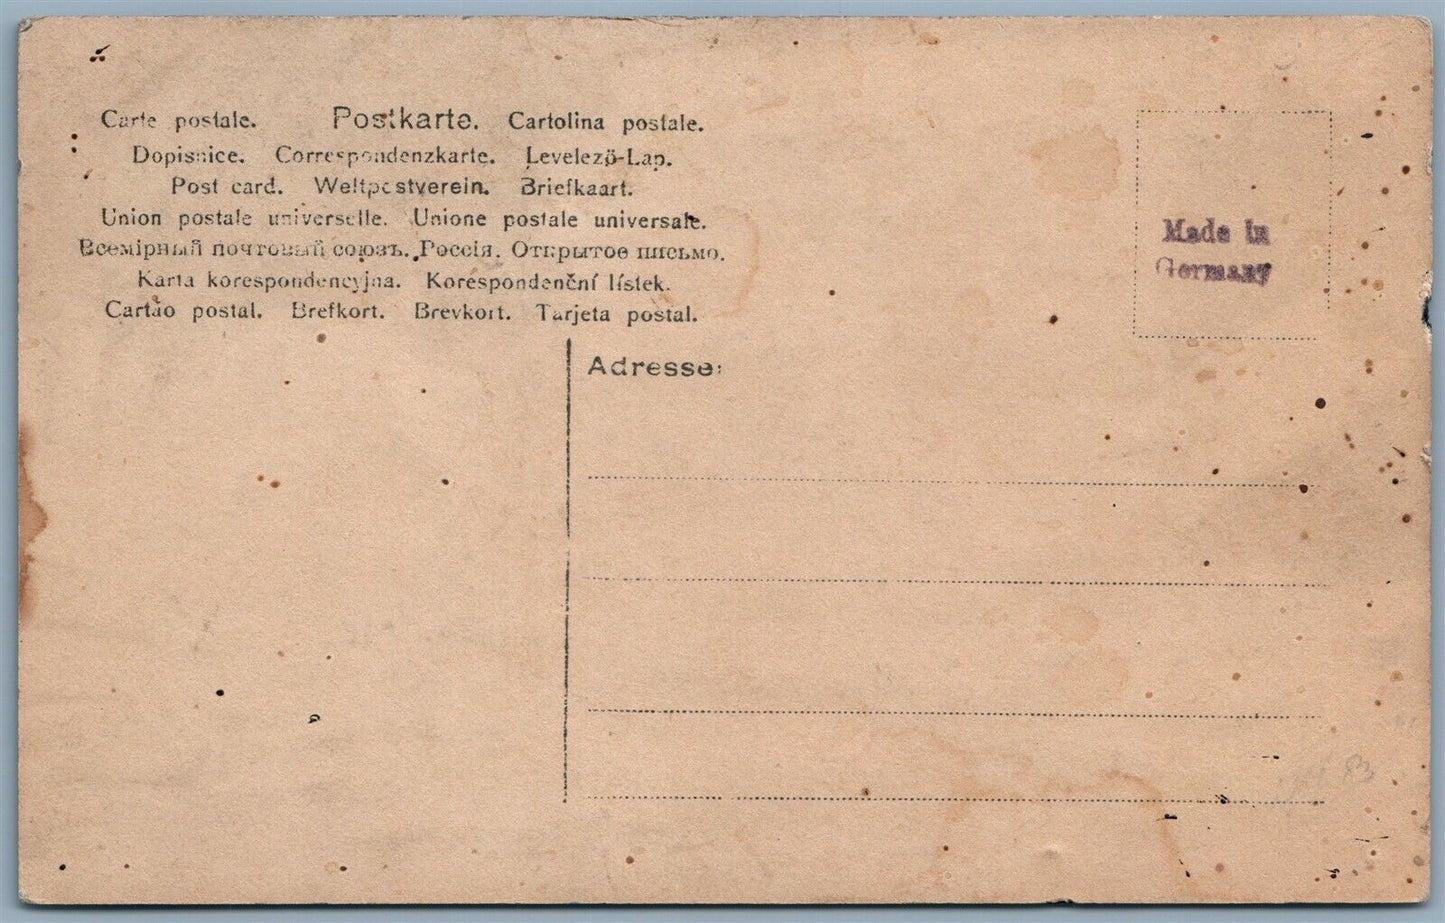 Carte postale. Postkarte. Cartolina postale.
Dopisnice. Correspondenzkarte. Levelező-Lap.
Post card. Weltpostverein. Briefkaart.
Union postale universelle. Unione postale universale.
Всемірный почтовый союзъ. Россія. Открытое письмо.
Karta korespondencyjna. Korespondenční lístek.
Cartão postal. Brefkort. Brevkort. Tarjeta postal.
Made in
Germany
Adresse:
83